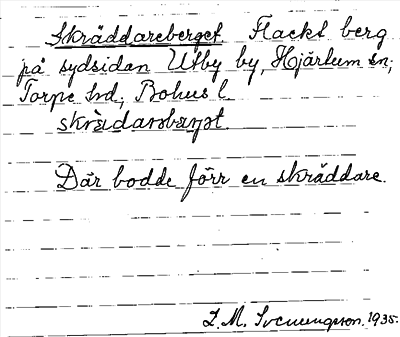 Skräddareberget. Flackt berg
på sydsidan Utby by, Hjärtum sn;
Torpe hd., Bohus l.
skrädarsbærjet.
Där bodde förr en skräddare.
J. M. Svenungsson. 1935.